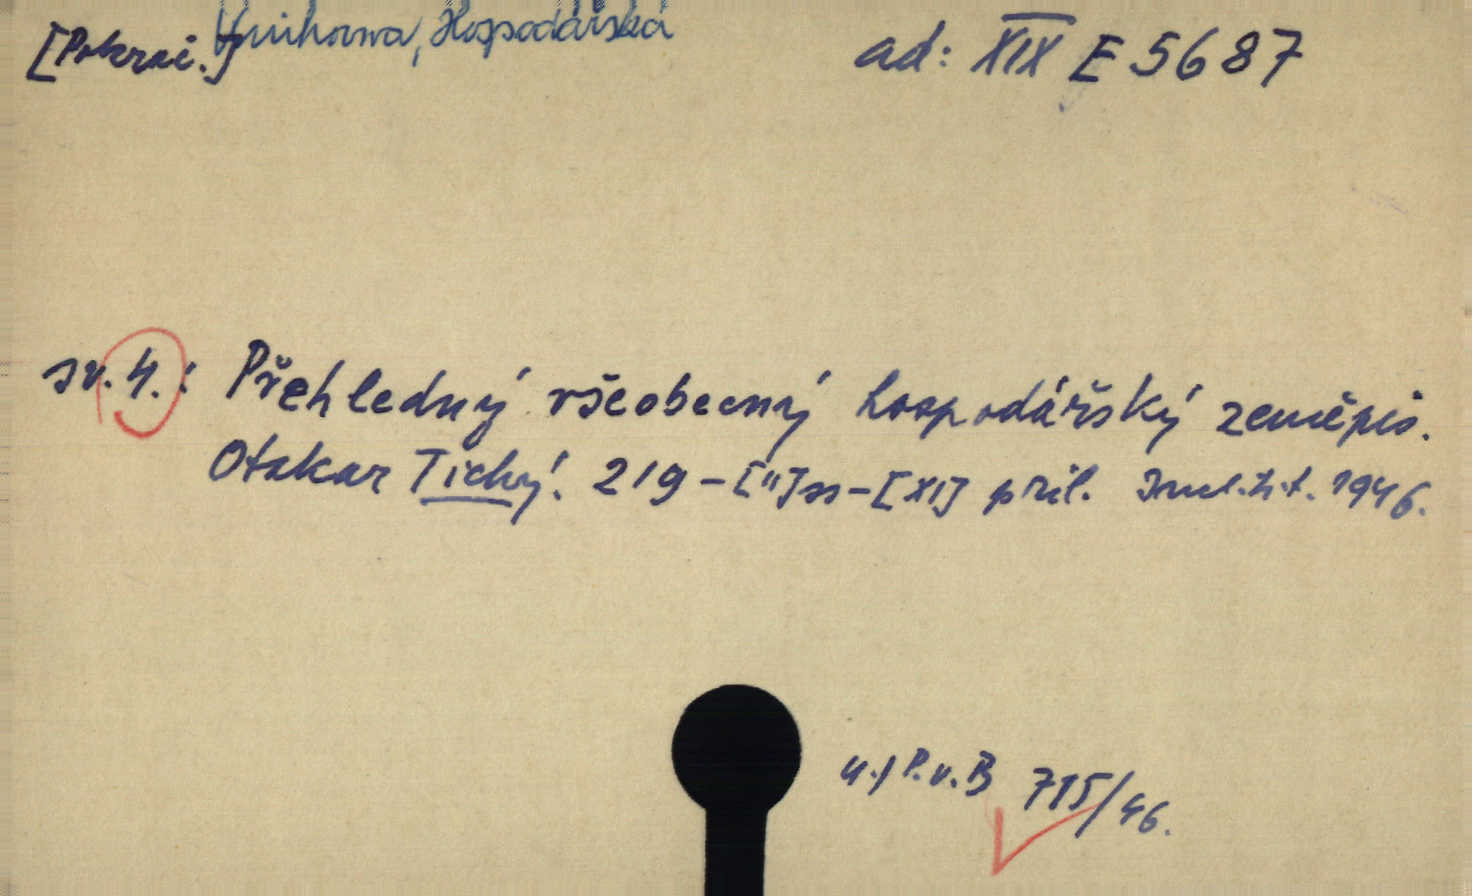 [Pokrač.] Knihovna, Hospodářská
ad: XIX E 5687
sv. 4.: Přehledný všeobecný hospodářský zeměpis.
Otakar Tichý. 219-["]ss-[XI] příl. 1946.
P.v.B 715/46.